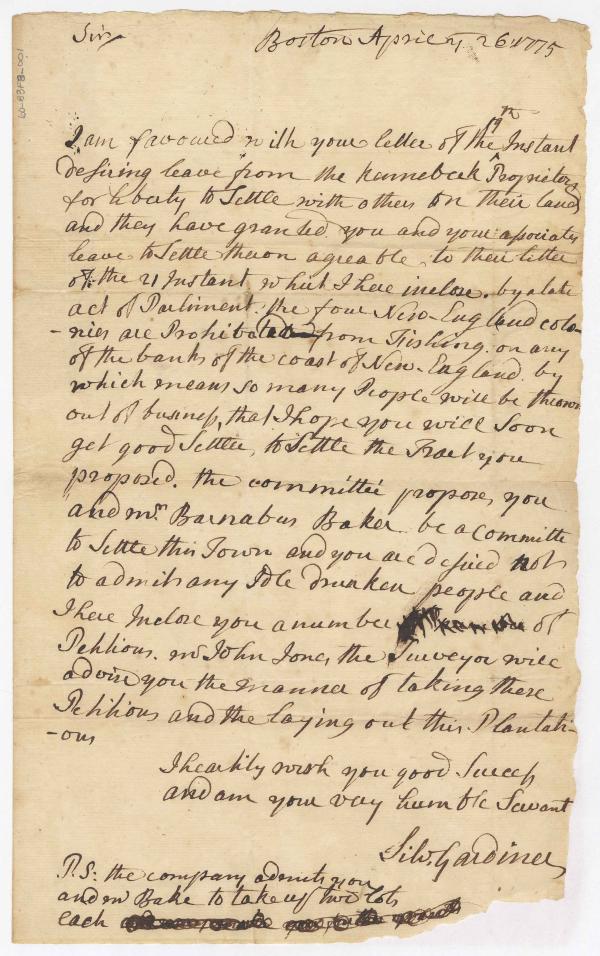 Sir
Boston April ye 26 1775
60-83FB-001
17th
I am favoured with your letter of the ^ Instant
desiring leave from the Kennebeck Proprietors
for liberty to Settle with others on their land
and they have granted you and your associates
leave to Settle theron agreable to their letter
of the 21 Instant which I here inclose. by a late
act of Parliment. the four New-England colo-
-nies are Prohibited from Fishing. on any
of the banks of the coast of New-England. by
which means so many People will be thrown
out of business, that I hope you will Soon
get good Settlers, to Settle the Tract you
proposed. the committee proposes you
and mr. Barnabus Baker be a Committe
to Settle this Town and you are desired not
to admit any Idle drunken people and
I here Inclose you a number of
Petitions. mr John Jones the Surveyor will
advise you the manner of taking these
Petitions and the laying out this Plantati-
-ons
I heartily wish you good Success
and am your very humble Servant
Silv. Gardiner
P.S: the company admits you
and mr Baker to take up two lots
each